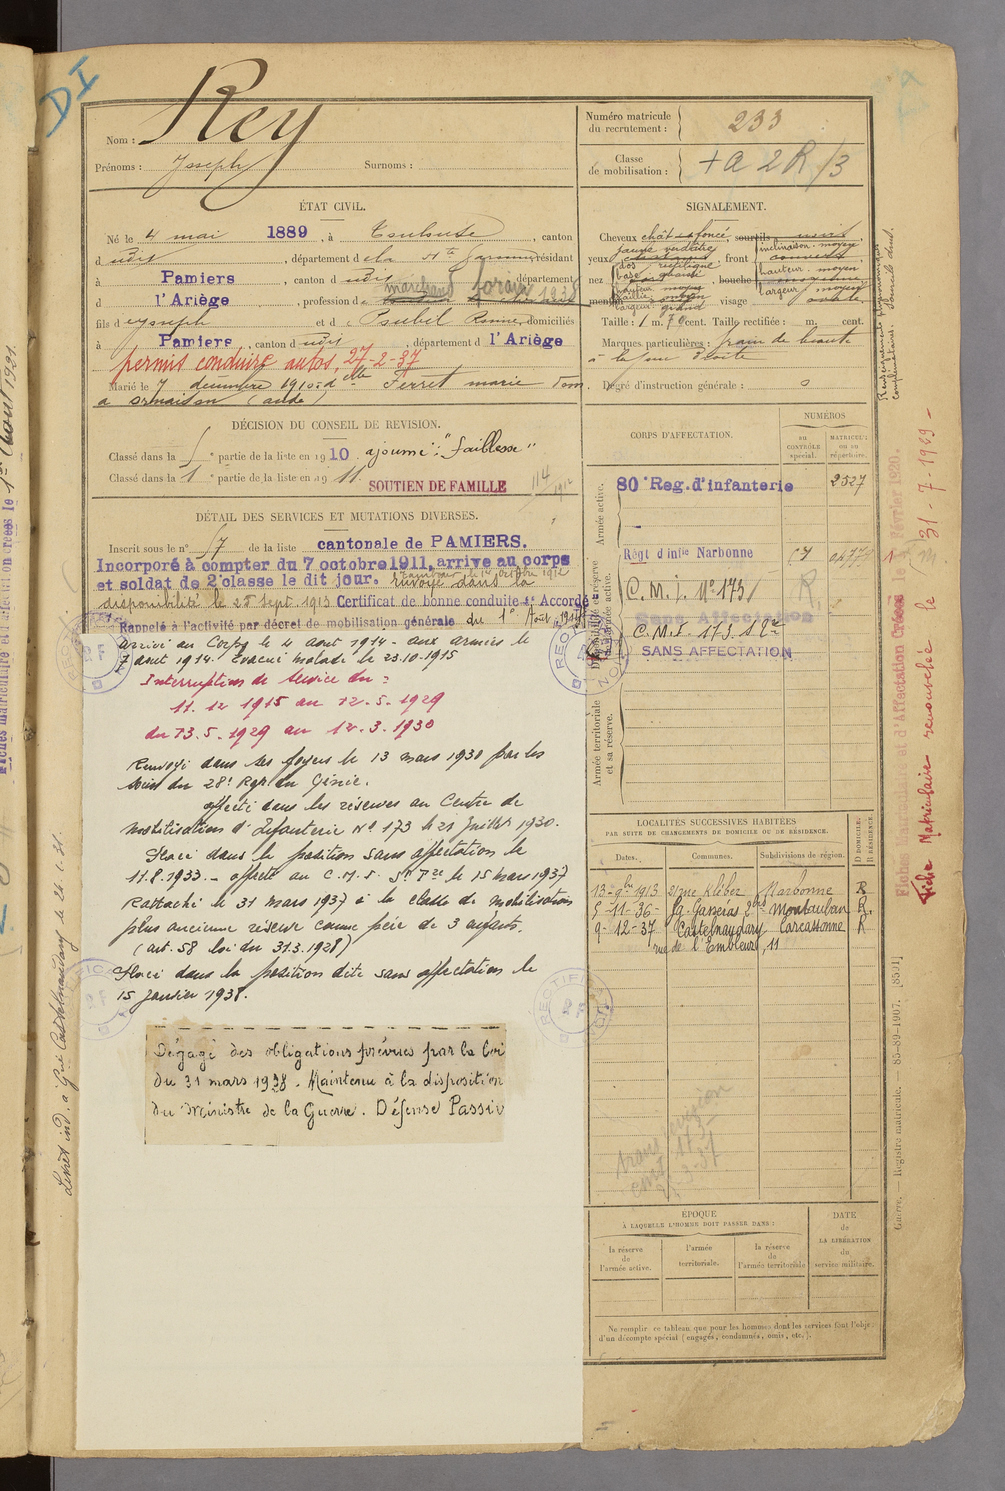 DI
Nom : Rey
Prénoms : Joseph Surnoms :
ÉTAT CIVIL.
Né le 4 mai 1889, à Toulouse, canton
d udit, département d la Hte Garonne, résidant
à Pamiers, canton d udit, département
d l'Ariège, profession d marchand forain 1938
fils d Joseph et d Domiciliés
à Pamiers, canton d udit, département d l'Ariège
permis conduire autos, 27-2-37
Marié le 7 décembre 1910 d elle Ferret marie Dom.
à Ornaison (aude)
DÉCISION DU CONSEIL DE REVISION.
Classé dans la 5e partie de la liste en 1910. ajourné : "faiblesse"
Classé dans la 1e partie de la liste en 1911.
SOUTIEN DE FAMILLE
114
1912
DÉTAIL DES SERVICES ET MUTATIONS DIVERSES.
Inscrit sous le n° 57 de la liste cantonale de PAMIERS.
Incorporé à compter du 7 octobre 1911, arrive au corps
et soldat de 2e classe le dit jour. renvoyé dans la
disponibilité le 25 Sept 1913 Certificat de bonne conduite Accordé
Rappelé à l'activité par décret de mobilisation générale du 1e Août 1914
Arrivé au Corps le 4 août 1914 - aux armées le
7 août 1914. Evacué malade le 23.10.1915
Interruption de service du :
11.12 1915 au 12.5.1929
du 13.5.1929 au 12.3.1930
Renvoyé dans ses foyers le 13 mars 1930 par les
soins du 28e Rgt du Génie.
affecté dans les réserves au Centre de
mobilisation d'Infanterie No 173 le 21 juillet 1930.
Placé dans la position sans affectation le
11.8.1933. - affecté au C.M.I. le 15 mars 1937
Rattaché le 31 mars 1937 à la classe de mobilisation
plus ancienne réserve comme père de 3 enfants.
(art. 58 loi du 31.3.1928)
Placé dans la position dite sans affectation le
15 janvier 1938.
Dégagé des obligations prévues par la loi
du 31 mars 1928. Maintenu à la disposition
du Ministre de la Guerre. Défense Passive
Numéro matricule du recrutement : 233
Classe de mobilisation : + a 2 R/3
SIGNALEMENT.
Cheveux chât foncé, sourcils noirs
yeux jaune verdâtre, front inclinaison moyen
nez dos rectiligne base grande, bouche hauteur moyen
menton visage largeur moyen ovale
Taille : 1 m. 79 cent. Taille rectifiée : m. cent.
Marques particulières : grain de beauté
à la joue droite
Degré d'instruction générale : 0
Renseignements physionomiques
complémentaires.
CORPS D'AFFECTATION.
NUMÉROS
AU CONTRÔLE spécial.
MATRICULE ou au répertoire.
Armée active.
80e Reg. d'infanterie 2327
Disponibilité et réserve de l'armée active.
Régt d'Infie Narbonne
C.M.I. No 173 R.
Sans Affectation
C.M.I. 173
SANS AFFECTATION
Armée territoriale et sa réserve.
LOCALITÉS SUCCESSIVES HABITÉES
PAR SUITE DE CHANGEMENTS DE DOMICILE OU DE RÉSIDENCE.
Dates. Communes. Subdivisions de région. D DOMICILE. R RÉSIDENCE.
13-9bre 1913 21 rue Kléber Narbonne R
5-11-36- Fg Gasseras Montauban R.
9-12-37 Castelnaudary Carcassonne R
rue de l'Embleurs, 11
ÉPOQUE
À LAQUELLE L'HOMME DOIT PASSER DANS :
DATE de LA LIBÉRATION du service militaire.
la réserve de l'armée active.
l'armée territoriale.
la réserve de l'armée territoriale
Ne remplir ce tableau que pour les hommes dont les services font l'objet
d'un décompte spécial (engagés, condamnés, omis, etc.).
Guerre. — Registre matricule. — 85-89-1907. [8591]
Fiches Matriculaire et d'Affectation Créées le Février 1920.
Fiche Matriculaire renouvelée le 31-7-1929-
Livret ind. à Gié Castelnaudary le 24.11.31.
Août 1921.